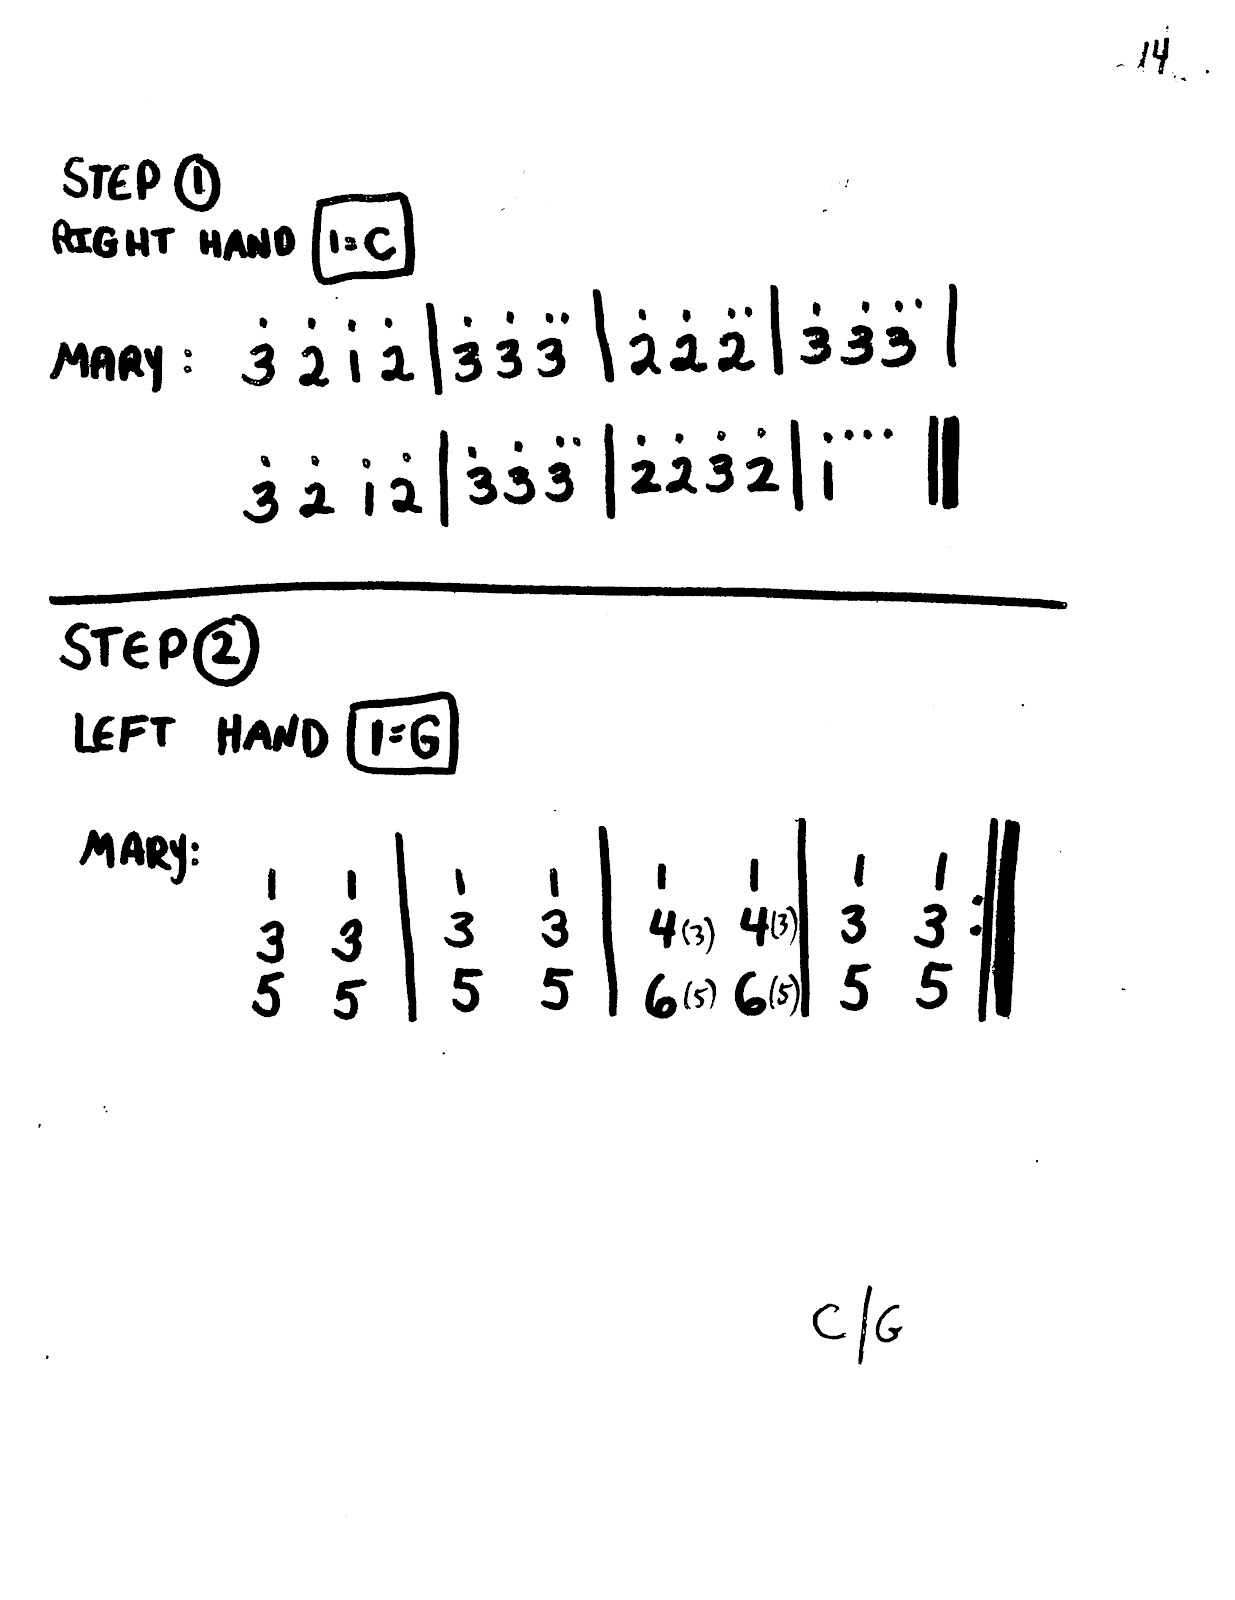 14
STEP ①
RIGHT HAND 1=C
MARY: 3 2 1 2 | 3 3 3 | 2 2 2 | 3 3 3 |
3 2 1 2 | 3 3 3 | 2 2 3 2 | 1 ||
STEP ②
LEFT HAND 1=G
MARY:
1 1 | 1 1 | 1 1 | 1 1
3 3 | 3 3 | 4(3) 4(3) | 3 3 :||
5 5 | 5 5 | 6(5) 6(5) | 5 5
C/G